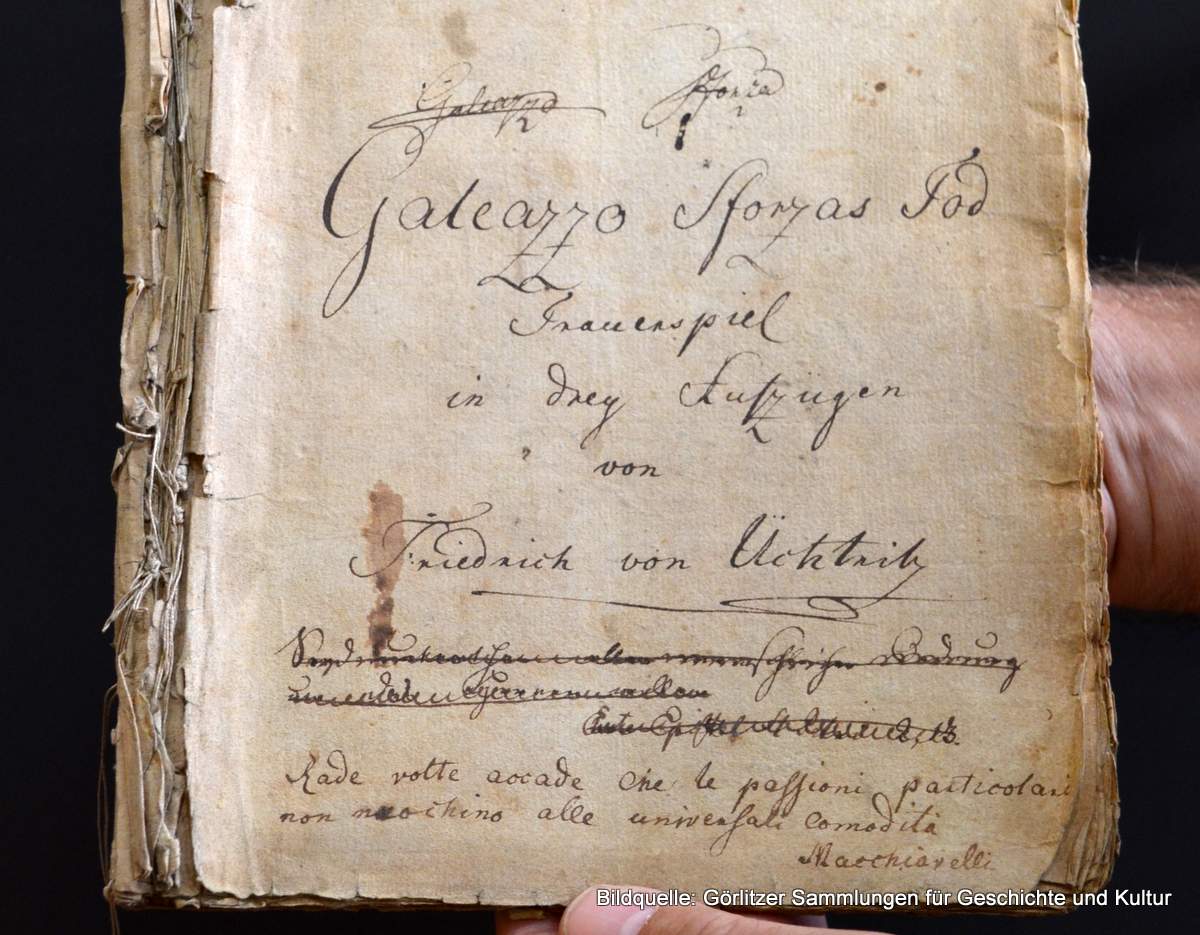 Galeazzo Sforza
Galeazzo Sforzas Tod
Trauerspiel
in drey Aufzügen
von
Friedrich von Üchtritz
Seyd unterthan aller menschlicher Ordnung
Erste Epistel 13.
Rade volte accade che le passioni particolari
non nuochino alle universali comodità
Macchiavelli
Bildquelle: Görlitzer Sammlungen für Geschichte und Kultur